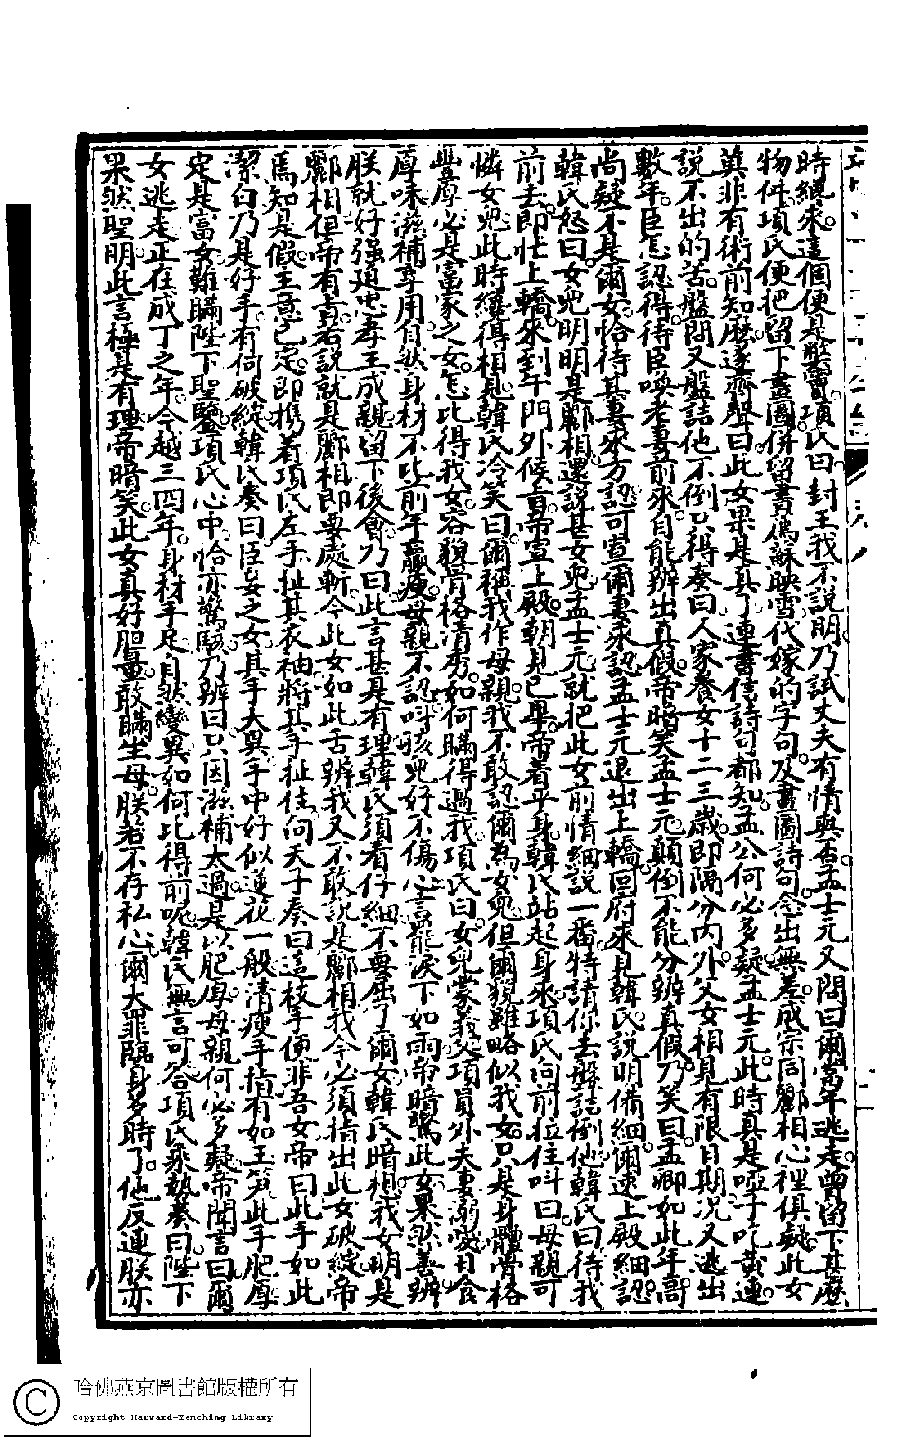 時纔來這個便是憑實項氏曰封王我不說明乃試丈夫有情與否孟士元又問曰爾當年逃走曾留下甚麼
物件項氏便把留下畫圖併留書爲蘇映雪代嫁的字句及畫圖詩句念出無差成宗同酈相心裡俱疑此女
莫非有術前知麼遂齊聲曰此女果是真了連書信詩句都知孟公何必多疑孟士元此時真是啞子吃黃連
說不出的苦盤問又盤詰他不倒只得奏曰人家養女十二三歲即隔分內外父女相見有限日期況又逃出
數年臣怎認得待臣喚老妻前來自能辨出真假帝暗笑孟士元顛倒不能分辨真假乃笑曰孟卿如此年高
尚疑不是爾女恰待其妻來方認可宣爾妻來認孟士元退出上轎回府來見韓氏說明備細爾速上殿細認
韓氏怒曰女兒明明是酈相還說甚女兒孟士元就把此女前情細說一番特請你去盤詰倒他韓氏曰待我
前去即忙上轎來到午門外候旨帝宣上殿朝見已畢帝着平身韓氏站起身來項氏向前拉住叫曰母親可
憐女兒此時纔得相見韓氏冷笑曰爾稱我作母親我不敢認爾爲女兒但爾貌雖略似我女只是身體骨格
豐厚必是富家之女怎比得我女容貌骨格清秀如何瞞得過我項氏曰女兒蒙義父項員外夫妻溺愛日食
厚味滋補享用自然身材不比前年羸瘦母親不認呀孩兒好不傷心言罷淚下如雨帝暗驚此女果然善辨
朕就好强迫忠孝王成親留下後會乃曰此言甚是有理韓氏須看仔細不要屈了爾女韓氏暗想我女明是
酈相但帝有言若說就是酈相即要處斬今此女如此舌辨我又不敢說是酈相我今必須指出此女破綻帝
焉知是假主意已定即携着項氏左手扯其衣袖將其手扯住向天子奏曰這枝手便非吾女帝曰此手如此
潔白乃是好手有何破綻韓氏奏曰臣妾之女其手大異手中好似蓮花一般清瘦手指有如玉笋此手肥厚
定是富女難瞞陛下聖鑒項氏心中恰亦驚駭乃辨曰只因滋補太過是以肥厚母親何必多疑帝聞言曰爾
女逃走正在成丁之年今越三四年身材手足自然變異如何比得前呢韓氏無言可答項氏乘勢奏曰陛下
果然聖明此言極是有理帝暗笑此女真好胆量敢瞞生母朕若不存私心爾大罪臨身多時了他反連朕亦
哈佛燕京圖書館版權所有
Copyright Harvard-Yenching Library